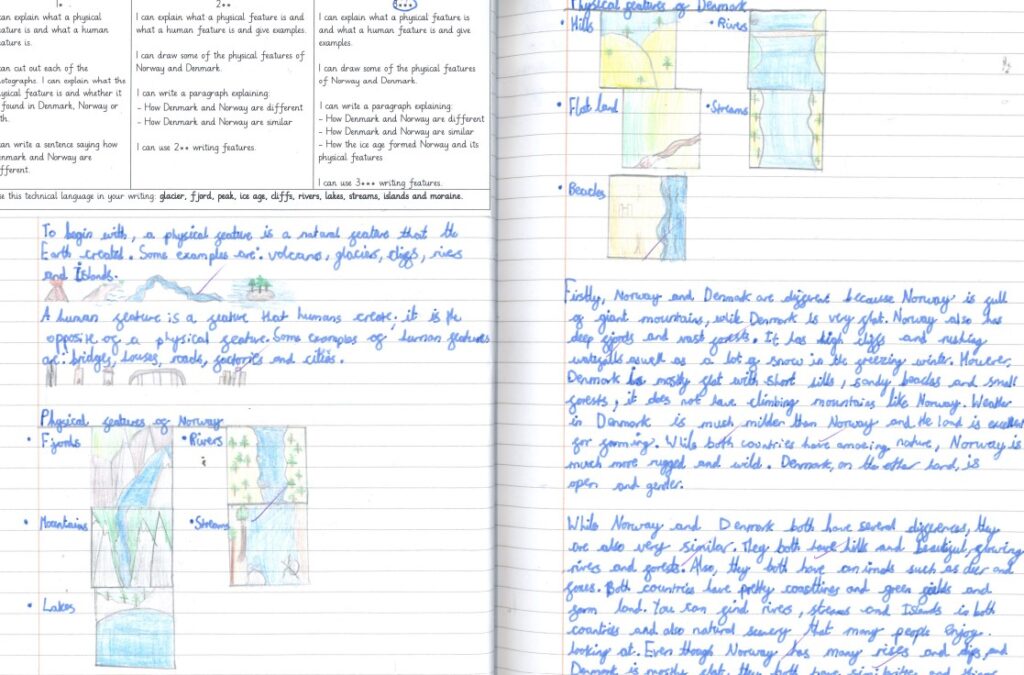 1*
2**
3***
can explain what a physical
feature is and what a human
feature is.
can cut out each of the
photographs. I can explain what the
physical feature is and whether it
found in Denmark, Norway or
can write a sentence saying how
Denmark and Norway are
different.
I can explain what a physical feature is and
what a human feature is and give examples.
I can draw some of the physical features of
Norway and Denmark.
I can write a paragraph explaining:
- How Denmark and Norway are different
- How Denmark and Norway are similar
I can use 2** writing features.
I can explain what a physical feature is
and what a human feature is and give
examples.
I can draw some of the physical features
of Norway and Denmark.
I can write a paragraph explaining:
- How Denmark and Norway are different
- How Denmark and Norway are similar
- How the ice age formed Norway and its
physical features
I can use 3*** writing features.
se this technical language in your writing: glacier, fjord, peak, ice age, cliffs, rivers, lakes, streams, islands and moraine.
To begin with, a physical feature is a natural feature that the
Earth created. Some examples are: volcano, glaciers, cliffs, rivers
and Islands.
A human feature is a feature that humans create, it is the
opposite of a physical feature. Some examples of human features
are: bridges, houses, roads, factories and cities.
Physical features of Norway
• Fjords
• Rivers
• Mountains
• Streams
• Lakes
Physical features of Denmark
• Hills
• Rivers
• Flat land
• Streams
• Beaches
Firstly, Norway and Denmark are different because Norway is full
of giant mountains, while Denmark is very flat. Norway also has
deep fjords and vast forests. It has high cliffs and rushing
waterfalls aswell as a lot of snow in the freezing winter. However,
Denmark is mostly flat with short hills, sandy beaches and small
forests, it does not have climbing mountains like Norway. Weather
in Denmark is much milder than Norway and the land is excellent
for farming. While both countries have amazing nature, Norway is
much more rugged and wild. Denmark, on the other hand, is
open and gentler.
While Norway and Denmark both have several differences, they
are also very similar. They both have hills and beautiful, flowing
rivers and forests. Also, they both have animals such as deer and
foxes. Both countries have pretty coastlines and green fields and
farm land. You can find rivers, streams and Islands in both
countries and also natural scenery that many people enjoy
looking at. Even though Norway has many rises and dips, and
Denmark is mostly flat, they both have similarities and things